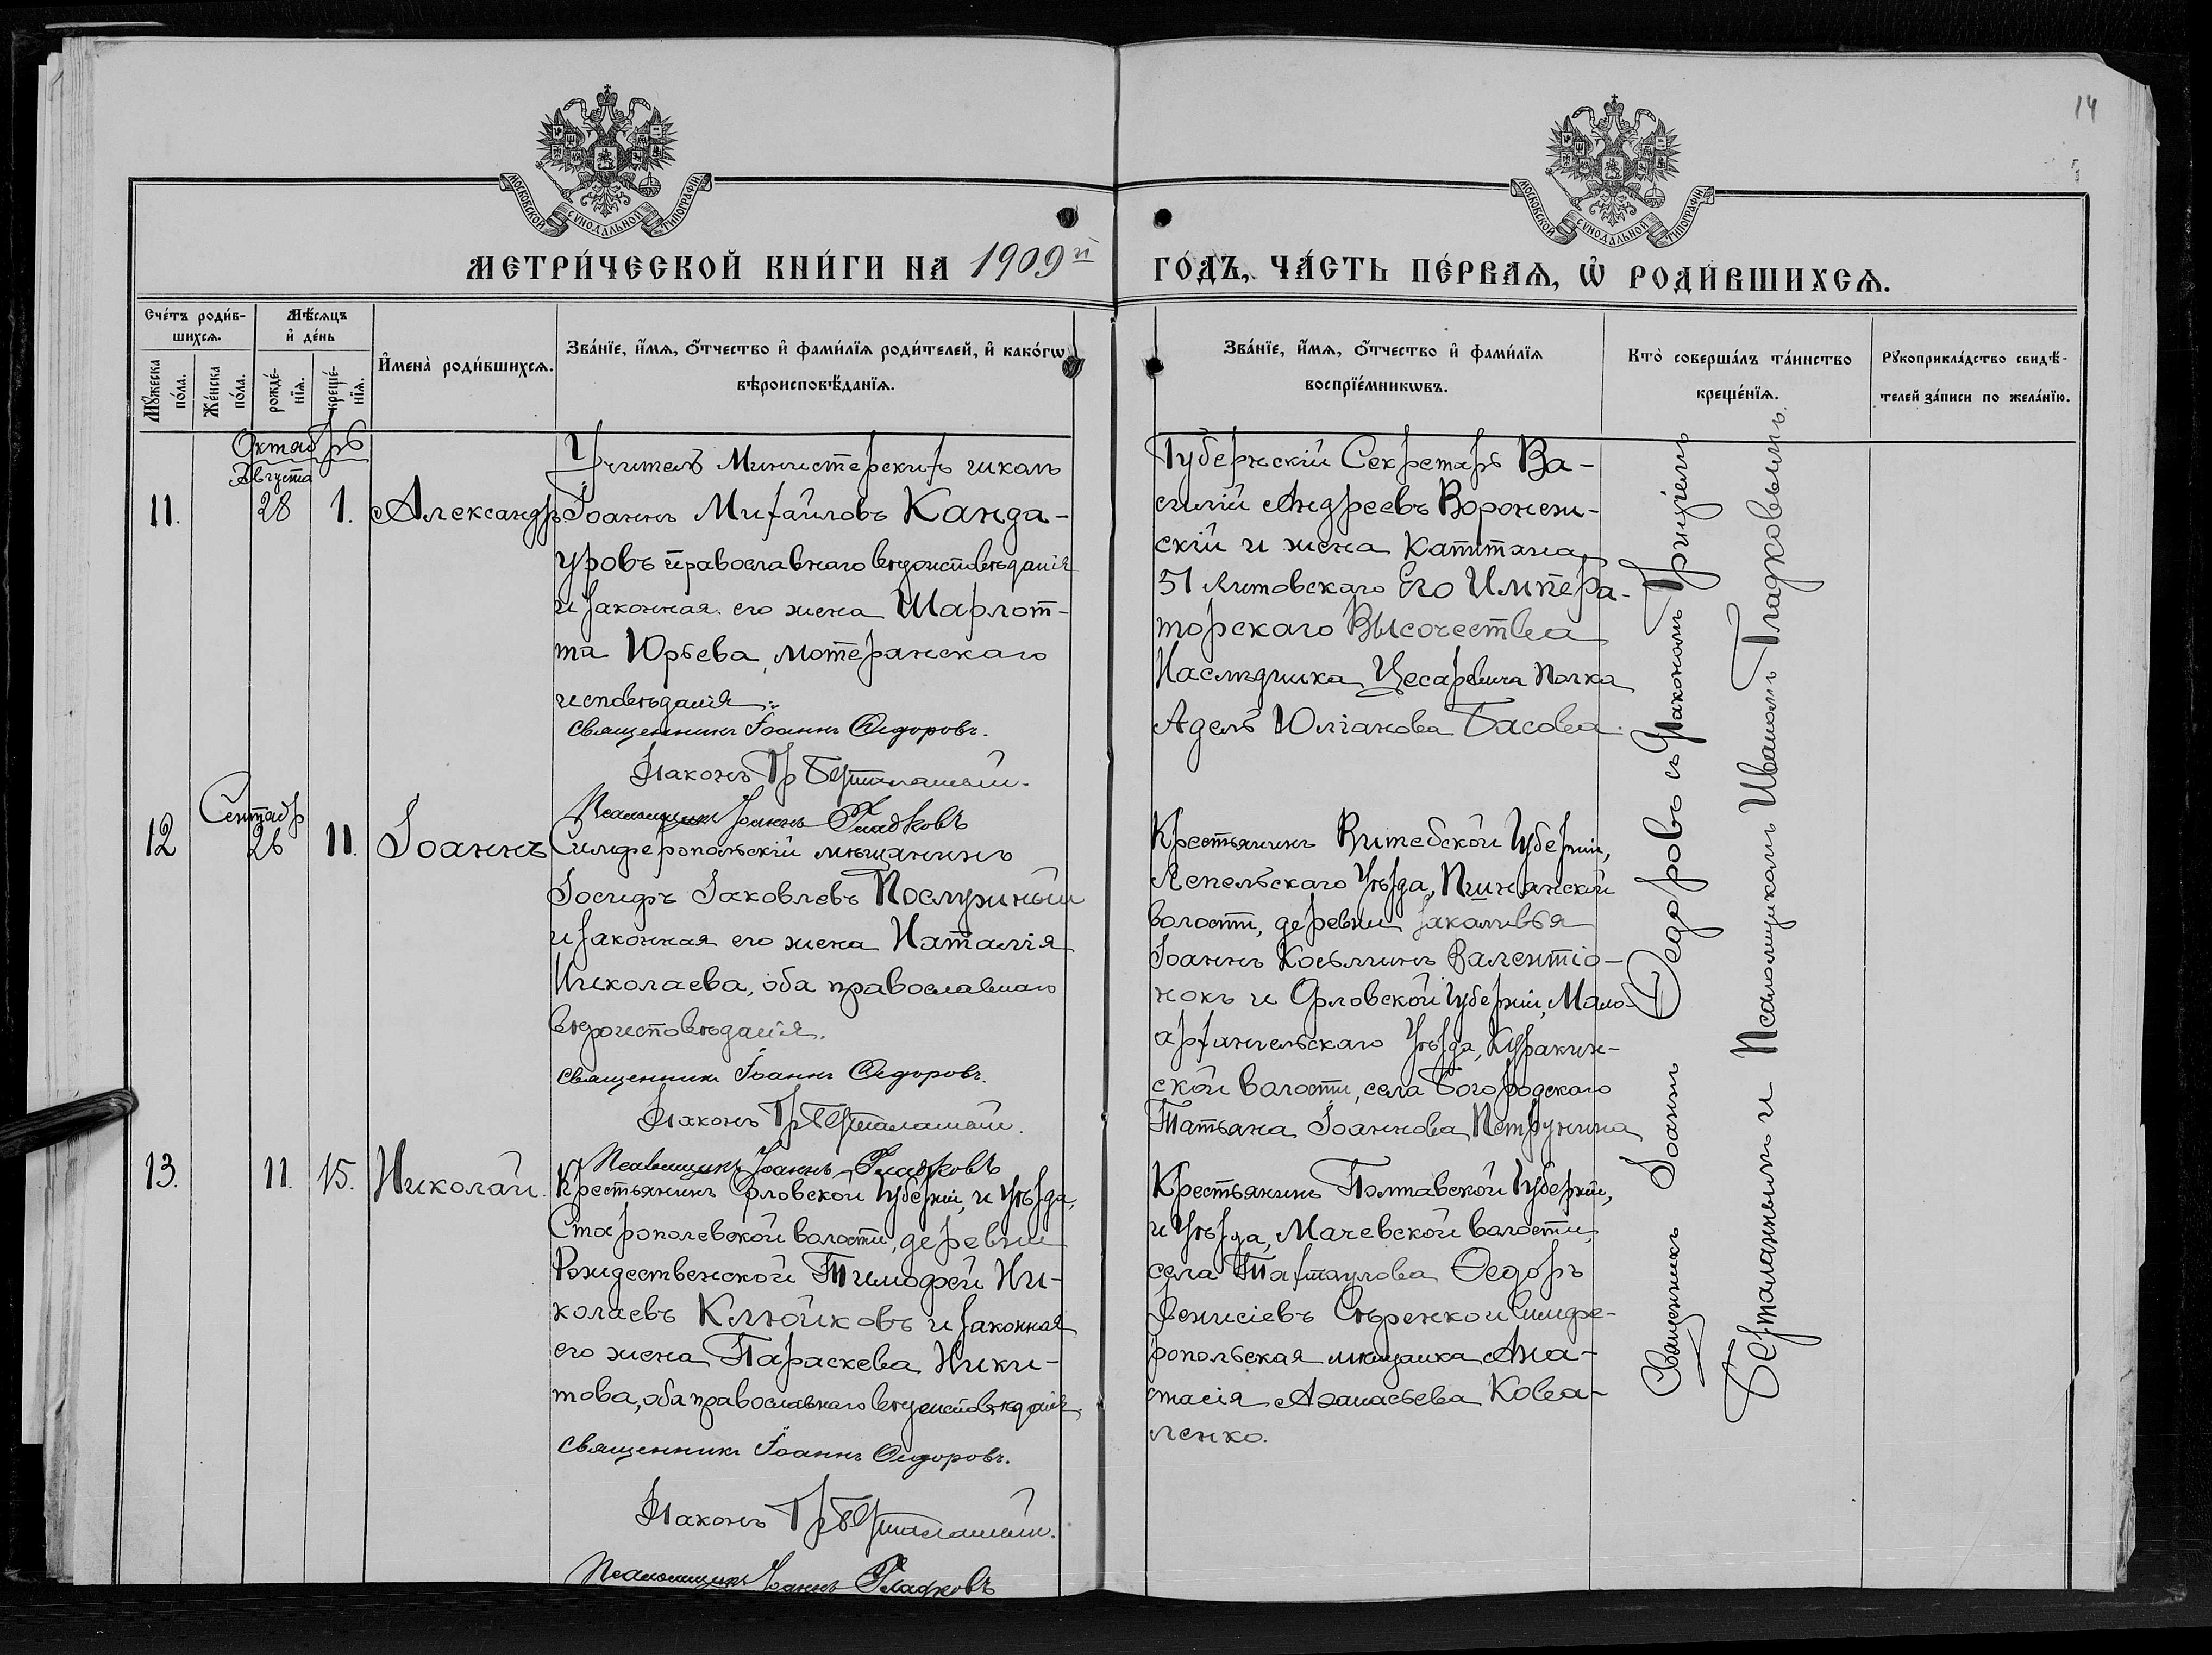 14
МОСКОВСКОЙ СѴНОДАЛЬНОЙ ТИПОГРАФІИ
МОСКОВСКОЙ СѴНОДАЛЬНОЙ ТИПОГРАФІИ
МЕТРИ́ЧЕСКОЙ КНИ́ГИ НА 1909й ГО́ДЪ, ЧА́СТЬ ПЕ́РВАѦ, Ѡ҆ РОДИ́ВШИХСѦ.
Сче́тъ роди́в-
шихсѧ.
Мѣ́сѧцъ
и҆ де́нь
Мꙋ́жеска по́ла.
Же́нска по́ла.
рожде́-
нїѧ.
креще́-
нїѧ.
И҆мена̀ роди́вшихсѧ.
Зва́нїе, и҆́мѧ, ѻ҆́тчество и҆ фами́лїѧ роди́телей, и҆ како́гѡ
вѣроисповѣ́данїѧ.
Зва́нїе, и҆́мѧ, ѻ҆́тчество и҆ фами́лїѧ
воспрїе́мникѡвъ.
Кто̀ соверша́лъ та́инство
креще́нїѧ.
Рꙋкоприкла́дство свидѣ́-
телей за́писи по жела́нїю.
Октябрь
Августа
11. 28 1. Александръ
Учитель Министерскихъ школъ
Іоаннъ Михайловъ Канда-
уровъ православнаго вѣроисповѣданія
и законная его жена Шарлот-
та Юрьева, лютеранскаго
исповѣданія.
Священникъ Іоаннъ Ѳедоровъ.
Діаконъ Гр
Псаломщикъ Іоаннъ Гладковъ
Губернскій Секретарь Ва-
силій Андреевъ Воронеж-
скій и жена Капитана
51 Литовскаго Его Импера-
торскаго Высочества
Наслѣдника Цесаревича Полка
Адель Юліанова Басова.
Сентябр
12 26 11. Іоаннъ
Симферопольскій мѣщанинъ
Іосифъ Іаковлевъ Послужный
и законная его жена Наталія
Николаева, оба православнаго
вѣроисповѣданія.
Священникъ Іоаннъ Ѳедоровъ.
Діаконъ Гр
Псаломщикъ Іоаннъ Гладковъ
Крестьянинъ Витебской Губерніи,
Лепельскаго Уѣзда, Пышнянской
волости, деревни Закаливья
Іоаннъ Косьминъ Валентіо-
нокъ и Орловской Губерніи, Мало-
архангельскаго Уѣзда, Куракин-
ской волости, села Богородскаго
Татьяна Іоаннова Петрунина
13. 11. 15. Николай.
Крестьянинъ Орловской Губерніи, и Уѣзда,
Старополевской волости, деревни
Рождественской Тимофей Ни-
колаевъ Клюйковъ и законная
его жена Параскева Ники-
това, оба православнаго вѣроисповѣданія,
Священникъ Іоаннъ Ѳедоровъ.
Діаконъ Гр
Псаломщикъ Іоаннъ Гладковъ
Крестьянинъ Полтавской Губерніи,
и Уѣзда, Мачевской волости,
села Тахтаулова Ѳедоръ
Денисіевъ Сѣренкои Симфе-
ропольская мѣщанка Ана-
стасія Аѳанасьева Кова-
ленко.
Священникъ Іоаннъ Ѳедоровъ съ Діакономъ Григоріемъ
и Псаломщикомъ Иваномъ Гладковымъ.